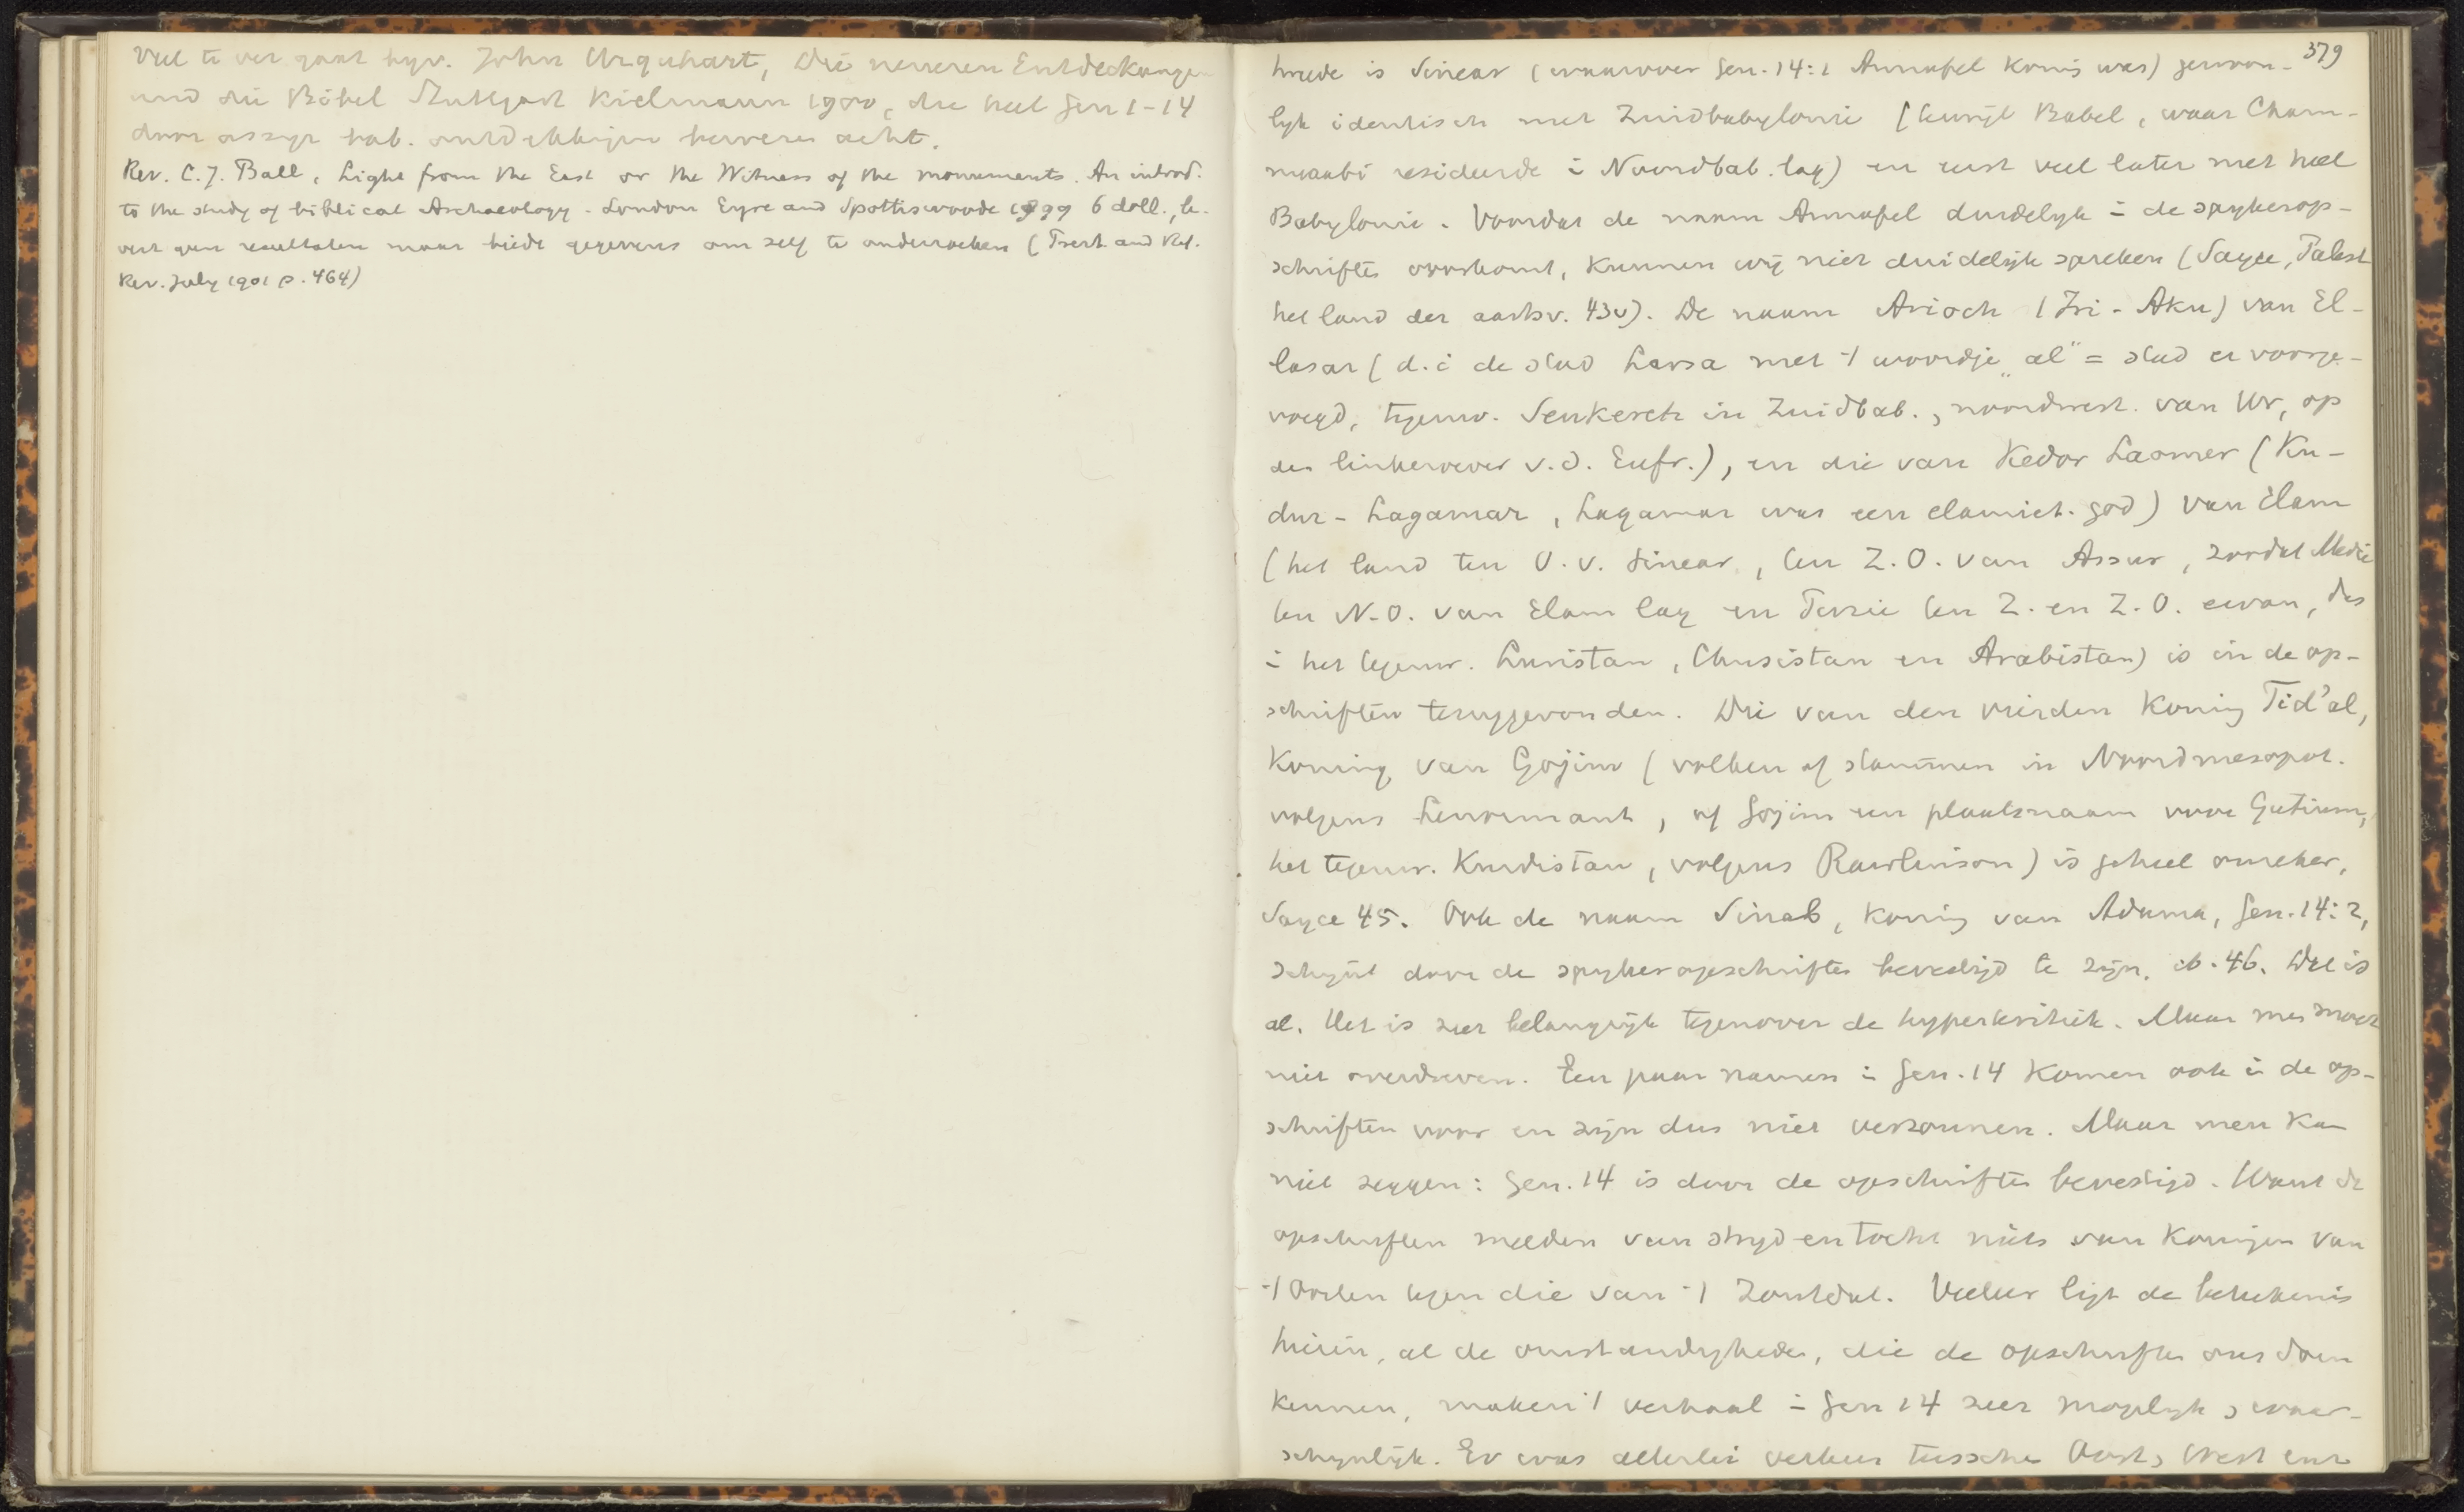 Veel te ver gaat bijv. John Urquhart, Die neueren Entdeckungen
und die Bibel Stuttgart Kielmann 1900, die heel Gen 1-14
door assyr bab. ontdekkingen bewezen acht.
Rev. C. J. Ball, Light from the East or the Witness of the monuments. An introd.
to the study of biblical Archaeology. London Eyre and Spottiswoode 1899 6 doll., le-
vert geen resultaten maar biedt gegevens om zelf te onderzoeken (Presb. and Ref.
Rev. July 1901 p. 464)
379
heede is Sinear (waarover Gen. 14:1 Amrafel koning was) gewoon-
lijk identisch met Zuidbabylonie (terwijl Babel, waar Cham-
murabi resideerde in Noordbab. lag) en eerst veel later met heel
Babylonie. Voordat de naam Amrafel duidelijk in de spijkerop-
schriften voorkomt, kunnen wij niet duidelijk spreken (Sayce, Palest
het land der aartsv. 43v). De naam Arioch (Iri-Aku) van El-
lasar (d.i de stad Larsa met 't woordje „al" = stad er voorge-
voegd, tegenw. Senkereh in Zuidbab., noordwest. van Ur, op
den linkeroever v.d. Eufr.), en die van Kedor Laomer (Ku-
dur-Lagamar, Lagamar was een elamiet. god) van Elam
(het land ten O. v. Sinear, ten Z.O. van Assur, zoodat Medie
ten N.O. van Elam lag en Perzie ten Z. en Z.O. ervan, dus
in het tegenw. Luristan, Chusistan en Arabistan) is in de op-
schriften teruggevonden. Die van den vierden koning Tid'al,
koning van Gojim (volken of stammen in Noordmesopot.
volgens Lenormant, of Gojim een plaatsnaam voor Gutium,
het tegenw. Kurdistan, volgens Rawlinson) is geheel onzeker,
Sayce 45. Ook de naam Sinab, koning van Adama, Gen. 14:2,
schijnt door de spijkeropschriften bevestigd te zijn. ib. 46. Dit is
al. Het is zeer belangrijk tegenover de hyperkritiek. Maar men moet
niet overdreven. Een paar namen in Gen. 14 komen ook in de op-
schriften voor en zijn dus niet verzonnen. Maar men kan
niet zeggen: Gen. 14 is door de opschriften bevestigd. Want de
opschriften melden van strijd en tocht niets van koningen van
't Oosten tegen die van 't Zoutdal. Veeleer ligt de beteekenis
hierin, al de omstandigheden, die de opschriften ons doen
kennen, maken 't verhaal in Gen 14 zeer mogelijk, waar-
schijnlijk. Er was allerlei verkeer tusschen Oost, West enz